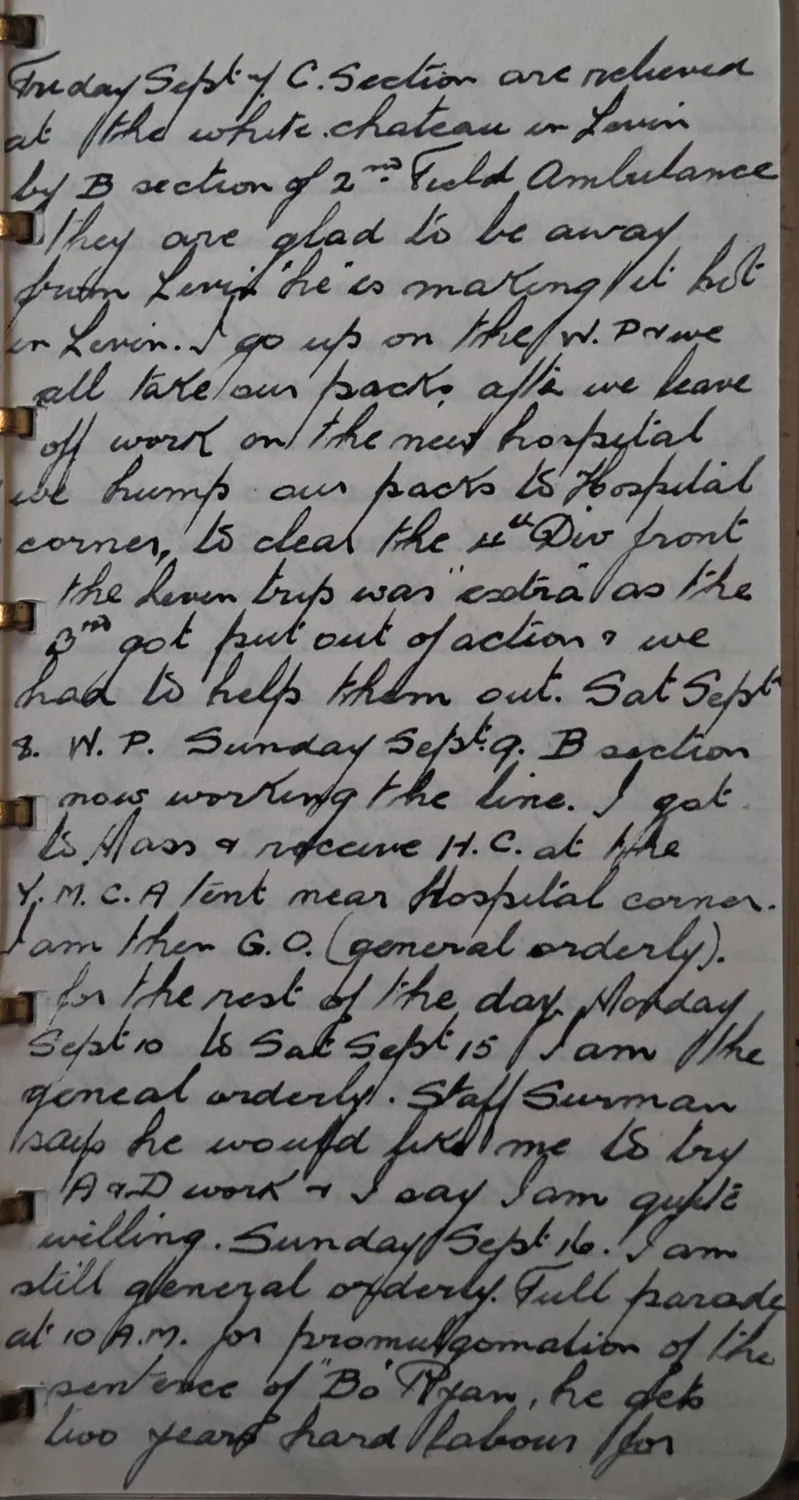 Friday Sept 7 C. Section are relieved
at the white chateau in Levin
by B section of 2nd Field Ambulance
they are glad to be away
from Levin "he" is making it hot
in Levin. I go up on the W. P & we
all take our packs after we leave
off work on the new hospital
we hump our packs to Hospital
corner, to clear the 4th Div front
the Leven trip was "extra" as the
3rd got put out of action & we
had to help them out. Sat Sept
8. W. P. Sunday Sept 9. B section
now working the line. I got
to Mass & receive H. C. at the
Y. M. C. A tent near Hospital corner.
I am then G. O. (general orderly).
for the rest of the day. Monday
Sept 10 to Sat Sept 15 I am the
geneal orderly. Staff Surman
says he would like me to try
A & D work & I say I am quite
willing. Sunday Sept 16. I am
still general orderly. Full parade
at 10 A.M. for promulgomation of the
sentence of "Bo" Ryan, he gets
two years hard labour for